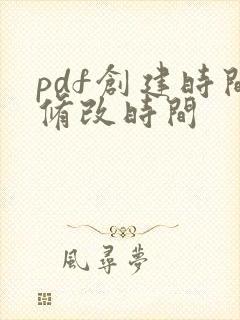 pdf創建時間
脩改時間
風尋夢